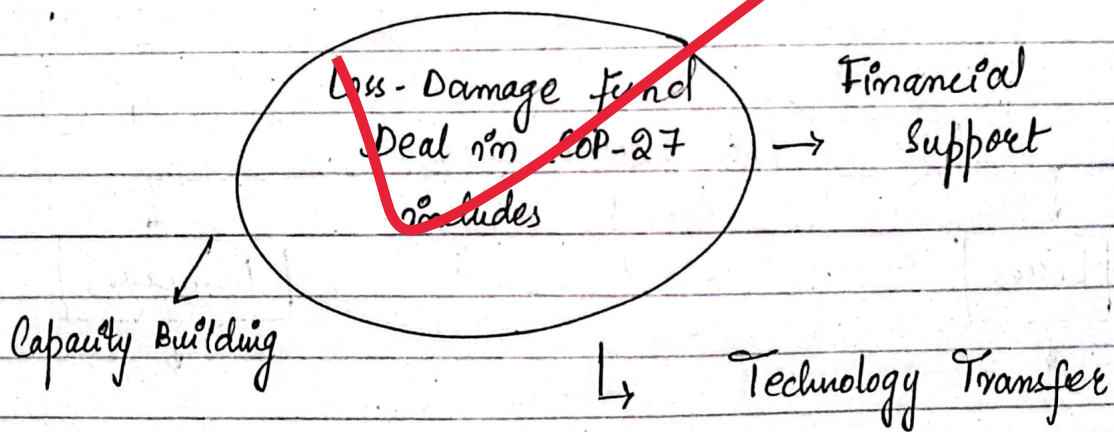 Loss-Damage Fund
Deal in COP-27
includes
Financial
Support
Capacity Building
Technology Transfer